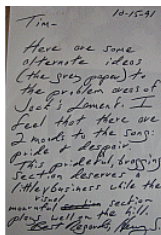 10-15-91
Tim-
Here are some
alternate ideas
(the grey paper) to
the problem areas of
Jack's Lament. I
feel that there are
2 moods to the song:
pride & despair.
This prideful, bragging
section deserves a
little business while the
visual
mournful section
plays well on the hill.
Best Regards,